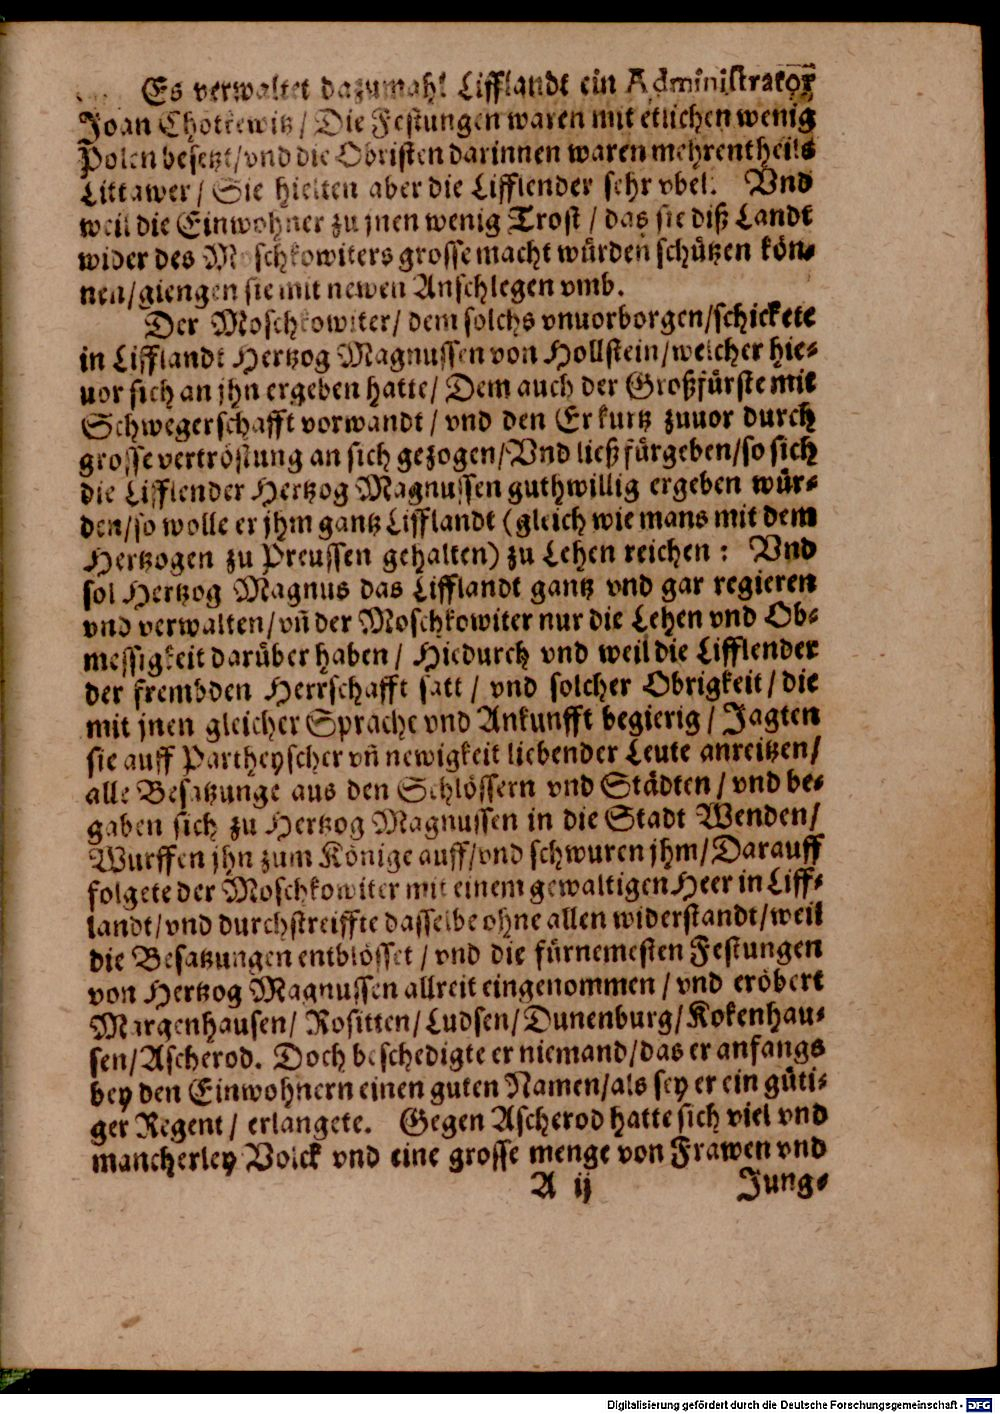 Es verwaltet dazumahl Lifflandt ein Administrator
Joan Chotkewitz / Die Festungen waren mit etlichen wenig
Polen besetzt / vnd die Obristen darinnen waren mehrentheils
Littawer / Sie hielten aber die Lifflender sehr vbel. Vnd
weil die Einwohner zu jnen wenig Trost / das sie diß Landt
wider des Moschkowiters grosse macht würden schützen kön-
nen / giengen sie mit newen Anschlegen vmb.
Der Moschkowiter / dem solchs vnuorborgen / schickete
in Lifflandt Hertzog Magnussen von Hollstein / welcher hie-
uor sich an jhn ergeben hatte / Dem auch der Großfürste mit
Schwegerschafft vorwandt / vnd den Er kurtz zuuor durch
grosse vertröstung an sich gezogen / Vnd ließ fürgeben / so sich
die Lifflender Hertzog Magnussen guthwillig ergeben wür-
den / so wolle er jhm gantz Lifflandt (gleich wie mans mit dem
Hertzogen zu Preussen gehalten) zu Lehen reichen : Vnd
sol Hertzog Magnus das Lifflandt gantz vnd gar regieren
vnd verwalten / vñ der Moschkowiter nur die Lehen vnd Ob-
messigkeit darüber haben / Hiedurch vnd weil die Lifflender
der frembden Herrschafft satt / vnd solcher Obrigkeit / die
mit jnen gleicher Sprache vnd Ankunfft begierig / Jagten
sie auff Partheyscher vñ newigkeit liebender Leute anreitzen /
alle Besatzunge aus den Schlössern vnd Städten / vnd be-
gaben sich zu Hertzog Magnussen in die Stadt Wenden /
Wurffen jhn zum Könige auff / vnd schwuren jhm / Darauff
folgete der Moschkowiter mit einem gewaltigen Heer in Liff-
landt / vnd durchstreiffte dasselbe ohne allen widerstandt / weil
die Besatzungen entblösset / vnd die fürnemesten Festungen
von Hertzog Magnussen allreit eingenommen / vnd eröbert
Margenhausen / Rositten / Ludsen / Dunenburg / Kokenhau-
sen / Ascherod. Doch beschedigte er niemand / das er anfangs
bey den Einwohnern einen guten Namen / als sey er ein güti-
ger Regent / erlangete. Gegen Ascherod hatte sich viel vnd
mancherley Volck vnd eine grosse menge von Frawen vnd
A ij Jung-
Digitalisierung gefördert durch die Deutsche Forschungsgemeinschaft - DFG